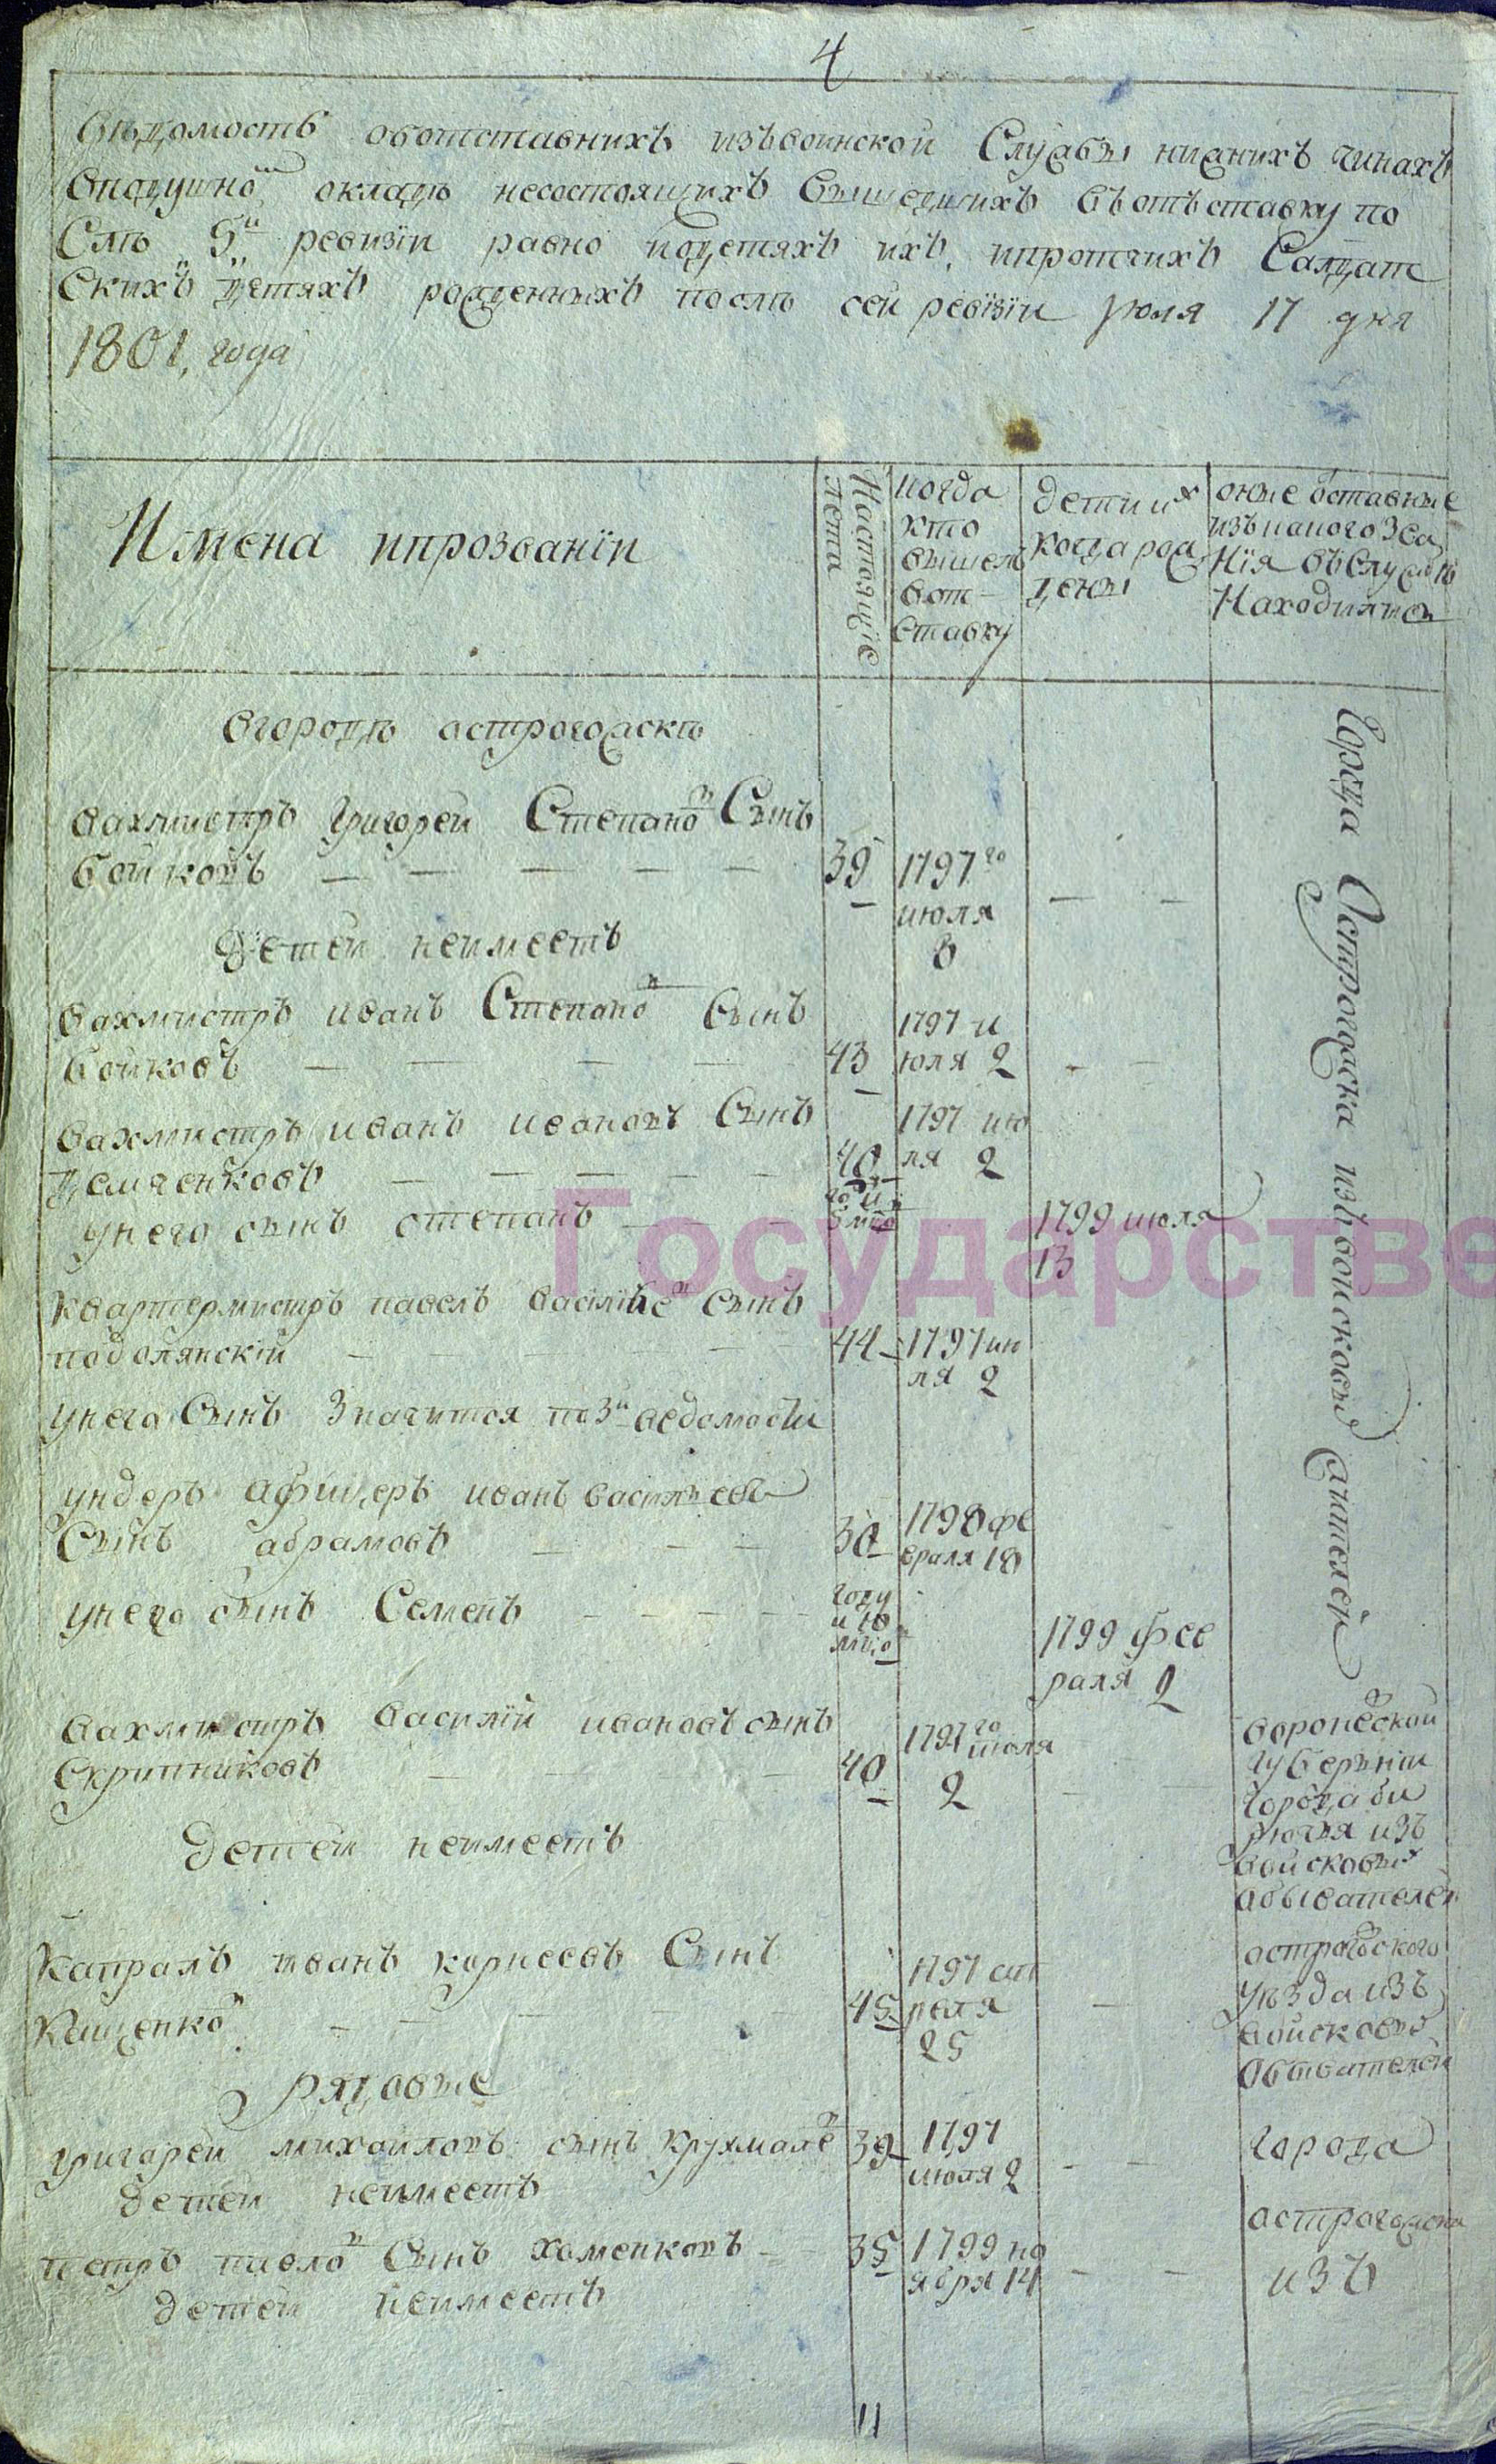 4
Вѣдомость обоотставнихъ изъвоинской Службы нижнихъ чинахъ
Вподушной окладъ несостоящихъ Вышедшихъ Въотъставку по
Слѣ 5й ревизіи равно иодетяхъ ихъ, ипротчихъ Салдат
Скихъ Детяхъ рожденныхъ послѣ сей ревізіи июля 17 дня
1801, года
Имена ипрозваніи
Настоящіе
лета
когда
кто
вышел
вот-
ставку
дети их
когда рож
дены
оные оставные
изъкакого зва
нія въслужбѣ
Находились
Вгородѣ острогожскѣ
вахмистръ Григорей Степановъ Сынъ
бойковъ — — — — —
39
1797го
июля
8
— —
Детей неимеетъ
вахмистръ иванъ Степановъ Сынъ
бойковъ — — — —
43
1797 и
юля 2
— —
вахмистръ иванъ ивановъ Сынъ
Демченковъ — — — —
40
1797 ию
ля 2
унего сынъ степанъ — — —
1799 июля
13
квартермистръ павелъ василь евъ сынъ
подолянскій — — — —
44
1797 ию
ля 2
унего Сынъ Значится по 3й ведомости
ундеръ афицеръ иванъ васильевъ
Сынъ абрамовъ — — —
30
1798 фе
враля 18
унего сынъ Семенъ — — — —
году
и 10
мцо
1799 фев
раля 2
города Острогожска изъвойсковых жителей
вахмистръ василій ивановъ сынъ
Скрипниковъ — — —
40
1797го
июля
2
— —
воронежской
губерьніи
города би
рючья изъ
войсковых
абывателей
Детей неимеетъ
Капралъ иванъ корнеевъ Сынъ
Кащенковъ — — — — —
45
1797 ап
реля
25
—
острогожского
уѣзда изъ
войсковых
Обывателей
рядовые
григорей михайловъ сынъ крухмалевъ
39
1797
июля 2
— —
города
детей неимеетъ
острогожска
петръ павловъ Сынъ хоменковъ —
35
1799 но
ября 14
— —
изъ
детей неимеетъ
11
Государстве